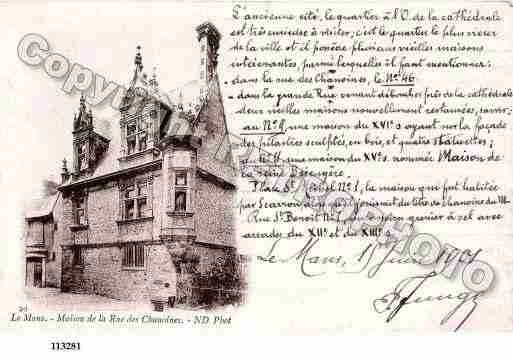 L'ancienne cité, le quartier à l'O. de la cathédrale
est très curieuse à visiter; c'est le quartier le plus
de la ville et il possède plusieurs vieilles maisons
intéressantes parmi lesquelles il faut mentionner:
- dans la rue des Chanoines, le No 46
- dans la grande Rue venant déboucher près de la cathédrale
deux vieilles maisons nouvellement restaurées, savoir:
au No 9, une maison du XVIe s ayant sur la façade
des pilastres sculptés, en bois, et quatre statuettes;
au No 11 une maison du XVe s. nommée Maison de
la reine Bérengère.
Place St No 1, la maison que fut habitée
par Scarron du titre de chanoine du Mans
Rue St Benoît No grenier à sel avec
arcades du XIIe et du XIIIe s.
Le Mans, Juin 1901
20
Le Mans. - Maison de la Rue des Chanoines. - ND Phot
Copyright
PHOTO
113281